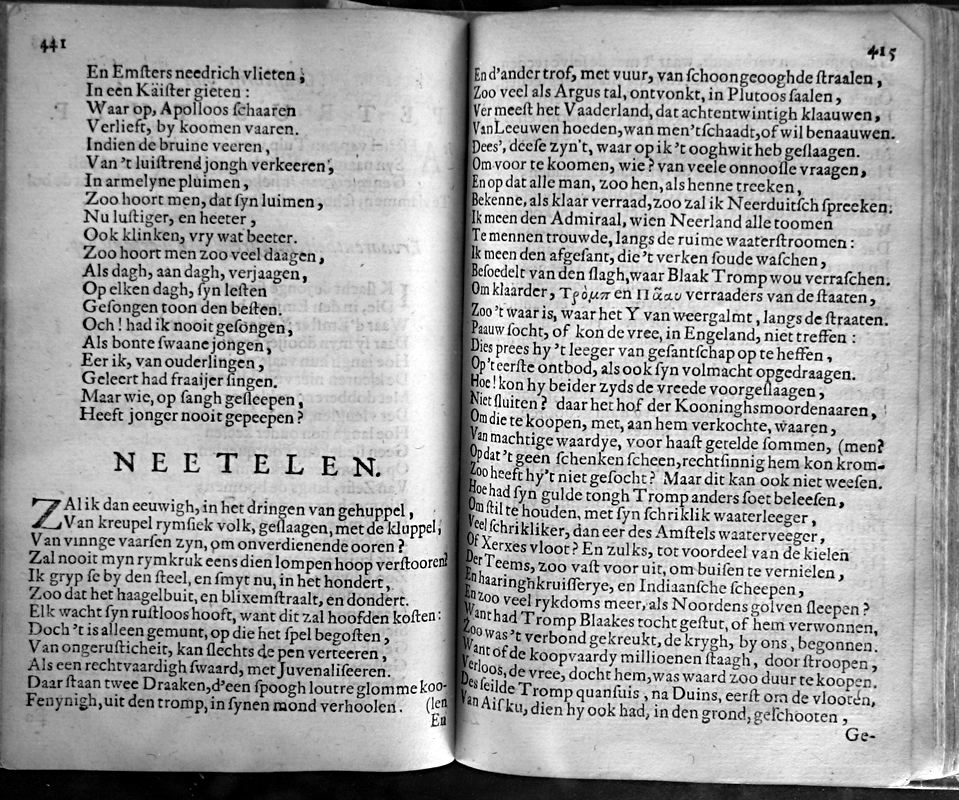 441
En Emſters needrich vlieten ;
In een Käiſter gieten :
Waar op, Apolloos ſchaaren
Verlieft, by koomen vaaren.
Indien de bruine veeren,
Van 't luiſtrend jongh verkeeren,
In armelyne pluimen,
Zoo hoort men, dat ſyn luimen,
Nu luſtiger, en heeter,
Ook klinken, vry wat beeter.
Zoo hoort men zoo veel daagen,
Als dagh, aan dagh, verjaagen,
Op elken dagh, ſyn leſten
Geſongen toon den beſten.
Och! had ik nooit geſongen,
Als bonte ſwaane jongen,
Eer ik, van ouderlingen,
Geleert had fraaijer ſingen.
Maar wie, op ſangh geſleepen,
Heeft jonger nooit gepeepen?
NEETELEN.
ZAl ik dan eeuwigh, in het dringen van gehuppel,
Van kreupel rymſiek volk, geſlaagen, met de kluppel,
Van vinnge vaarſen zyn, om onverdienende ooren?
Zal nooit myn rymkruk eens dien lompen hoop verſtooren?
Ik gryp ſe by den ſteel, en ſmyt nu, in het hondert,
Zoo dat het haagelbuit, en blixemſtraalt, en dondert.
Elk wacht ſyn ruſtloos hooft, want dit zal hoofden koſten:
Doch 't is alleen gemunt, op die het ſpel begoſten,
Van ongeruſticheit, kan ſlechts de pen verteeren,
Als een rechtvaardigh ſwaard, met Juvenaliſeeren.
Daar ſtaan twee Draaken, d'een ſpoogh loutre glomme koo-
Fenynigh, uit den tromp, in ſynen mond verhoolen. (len
En
415
En d'ander trof, met vuur, van ſchoongeooghde ſtraalen,
Zoo veel als Argus tal, ontvonkt, in Plutoos ſaalen,
Ver meeſt het Vaaderland, dat achtentwintigh klaauwen,
Van Leeuwen hoeden, wan men't ſchaadt, of wil benaauwen.
Dees', deeſe zyn't, waar op ik 't ooghwit heb geſlaagen.
Om voor te koomen, wie? van veele onnooſle vraagen,
En op dat alle man, zoo hen, als henne treeken,
Bekenne, als klaar verraad, zoo zal ik Neerduitſch ſpreeken:
Ik meen den Admiraal, wien Neerland alle toomen
Te mennen trouwde, langs de ruime waaterſtroomen :
Ik meen den afgeſant, die 't verken ſoude waſchen,
Beſoedelt van den ſlagh, waar Blaak Tromp wou verraſchen.
Om klaarder, Τρὸμπ en Πᾶαυ verraaders van de ſtaaten,
Zoo 't waar is, waar het Y van weergalmt, langs de ſtraaten.
Paauw ſocht, of kon de vree, in Engeland, niet treffen :
Dies prees hy 't leeger van geſantſchap op te heffen,
Op't eerſte ontbod, als ook ſyn volmacht opgedraagen.
Hoe! kon hy beider zyds de vreede voorgeſlaagen,
Niet ſluiten? daar het hof der Kooninghsmoordenaaren,
Om die te koopen, met, aan hem verkochte, waaren,
Van machtige waardye, voor haaſt getelde ſommen, (men?
Op dat 't geen ſchenken ſcheen, rechtſinnig hem kon krom-
Zoo heeft hy't niet geſocht? Maar dit kan ook niet weeſen.
Hoe had ſyn gulde tongh Tromp anders ſoet beleeſen,
Om ſtil te houden, met ſyn ſchriklik waaterleeger,
Veel ſchrikliker, dan eer des Amſtels waaterveeger,
Of Xerxes vloot? En zulks, tot voordeel van de kielen
Der Teems, zoo vaſt voor uit, om buiſen te vernielen,
En haaringhkruiſſerye, en Indiaanſche ſcheepen,
En zoo veel rykdoms meer, als Noordens golven ſleepen?
Want had Tromp Blaakes tocht geſtut, of hem verwonnen,
Zoo was 't verbond gekreukt, de krygh, by ons, begonnen.
Want of de koopvaardy millioenen ſtaagh, door ſtroopen,
Verloos, de vree, docht hem, was waard zoo duur te koopen.
Des ſeilde Tromp quanſuis, na Duins, eerſt om de vlooten,
Van Aiſku, dien hy ook had, in den grond, geſchooten,
Ge-